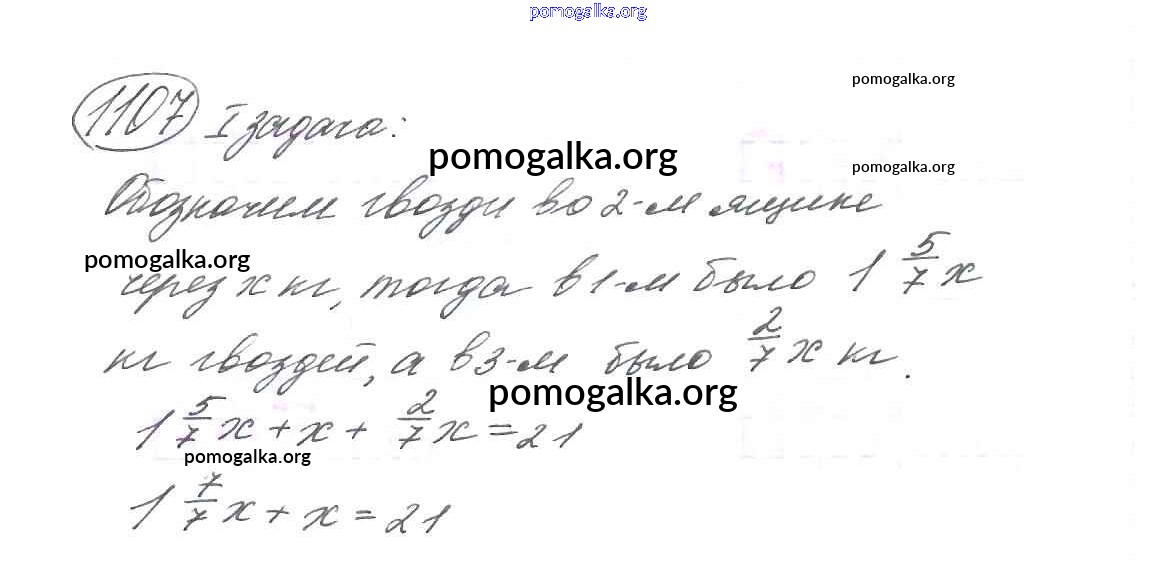 pomogalka.org
pomogalka.org
1107 I задача:
pomogalka.org
pomogalka.org
Обозначим гвозди во 2-м ящике
pomogalka.org
через x кг, тогда в 1-м было 1 5/7 x
кг гвоздей, а в 3-м было 2/7 x кг.
pomogalka.org
1 5/7 x + x + 2/7 x = 21
pomogalka.org
1 7/7 x + x = 21